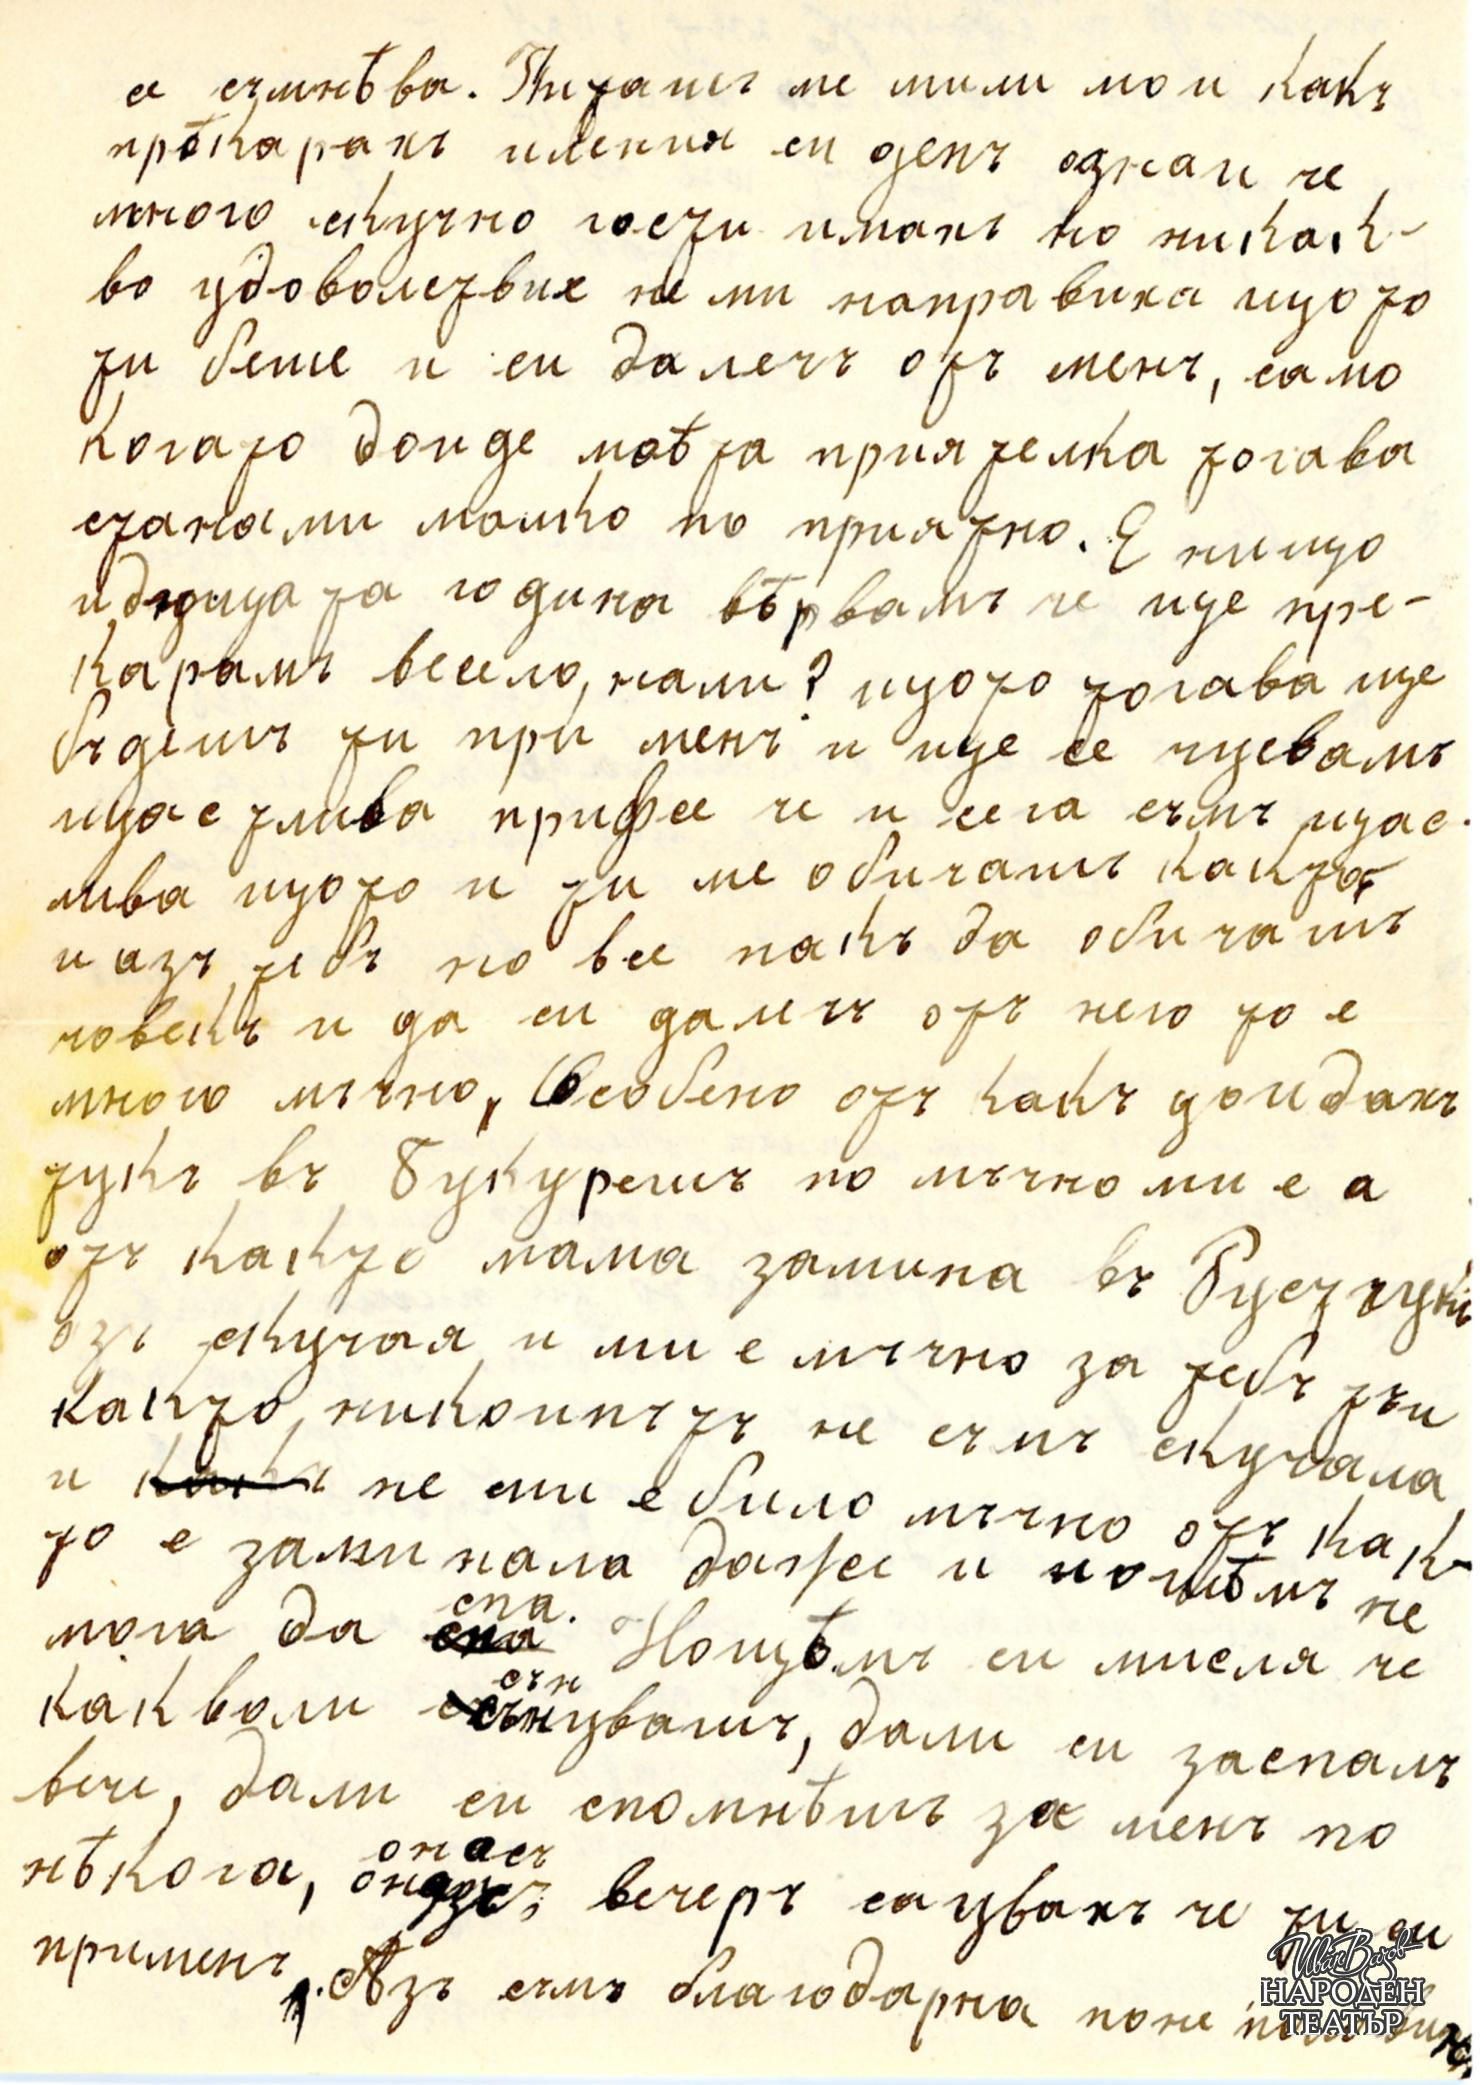 се съмнѣва. Питашъ ме мили мои какъ
прѣкарахъ имения си денъ ознаи че
много скучно гости имахъ но никак-
во удоволствие не ми направиха щото
ти беше и си далечъ отъ менъ, само
когато доиде моѣта приятелка тогава
станами малко по приятно. Е нищо
идющата година вѣрвамъ че ще пре-
карамъ весело, нали? щото тогава ще
бъдешъ ти при менъ и ще се чуевамъ
щастлива при все че и сега съмъ щас-
лива щото и ти ме обичашъ както
и азъ тебъ но все пакъ да обичашъ
човекъ и да си далечъ отъ него то е
много мъчно, Особено отъ какъ доидахъ
тукъ въ Букурешъ по мъчно ми е а
отъ както мама замина въ Русчукъ
азъ скучая и ми е мъчно за тебъ тъи
както, никоипътъ не съмъ скучала
и какъ не ми е било мъчно отъ как-
то е заминала даже и нощѣмъ не
мога да спа спа. Нощѣмъ си мисля че
какволи сънувашъ, дали си заспалъ
вече, дали си спомнѣшъ за менъ по
нѣкога, онасъ вечеръ сауваxъ че ти си
применъ. Азъ съмъ благодарна поне
НАРОДЕН
ТЕАТЪР